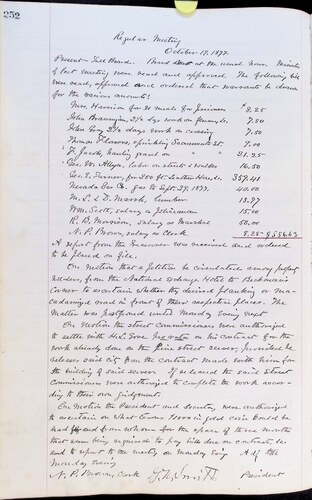 252
Regular Meeting
October 17, 1877.
Present - Full Board. Board met at the usual hour. Minutes
of last meeting were read and approved. The following bills
were read, approved and ordered that warrants be drawn
for the various amounts:
Mrs. Harrison for 21 meals for prisoners $ 8.25
John Brannigin, 2½ dys work on 7.50
John Gray 2½ days work on crossing 7.50
Thomas Flowers, sprinkling Sacramento St. 9.00
F. hauling gravel on " 31.25
Geo. W. Allyn, labor on streets & water 16.50
Geo. E. Turner, for 250 ft. 357.41
Nevada Gas Co. gas to Sept 29, 1877. 40.00
M. L. & D. Marsh, lumber 13.97
Wm. Scott, salary as policeman 15.00
R. D. Morrison, salary as Marshal 50.00
N. P. Brown, salary as Clerk 8.25
A report from the Treasurer was received and ordered
to be placed on file.
On motion that a petition be circulated among property
holders, from the National Exchange Hotel to
Corner to ascertain whether they desired planking or Ma-
cadamized road in front of their respective places. The
matter was postponed until Monday Evening next
On motion the street commissioners were authorized
to settle with on his contract for the
work already done on the street sewer, provided he
releases said city from the contract made with him for
the building of said sewer. If so released the said Street
Commissioners were authorized to complete the work accor-
ding to their own judgement.
On motion the President and Secretary were authorized
to ascertain on what terms in gold coin could be
had and from whom for the space of three months
that sum being required to pay bills due on contracts, &c
and to report to the meeting on Monday Evg
Monday Evening
N. P. Brown, Clerk President